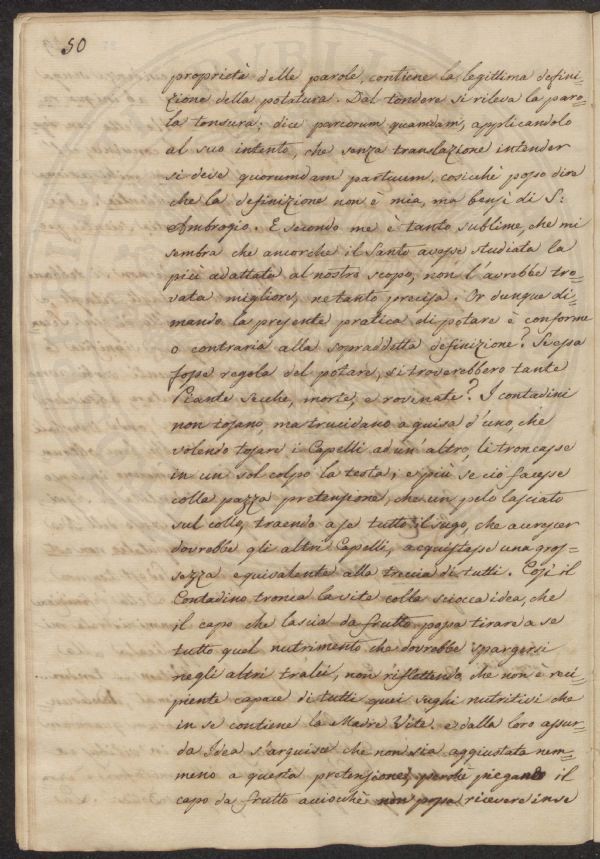 50
proprietà delle parole, contiene la legittima defini=
zione della potatura. Dal tondere si rileva la paro=
la tonsura; dice parcorum quamdam, applicandolo
al suo intento, che senza translazione intender
si deve quorumdam partuum, cosicchè posso dire
che la definizione non è mia, ma bensì di S:
Ambrogio. E secondo me è tanto sublime, che mi
sembra che ancorche il Santo avesse studiata la
più adattata al nostro scopo, non l'avrebbe tro=
vata migliore, ne tanto precisa. Or dunque di=
mando la presente pratica di potare è conforme
o contraria alla sopraddetta definizione? Se essa
fosse regola del potare, si troverebbero tante
Piante secche, morte, e rovinate? I contadini
non tosano, ma trucidano a guisa d'uno, che
volendo tosare i Capelli ad un'altro, li troncasse
in un sol colpo la testa; e più se ciò facesse
colla pazza pretensione, che un pelo lasciato
sul collo, traendo a se tutto il sugo, che accrescer
dovrebbe gli altri Capelli, acquistasse una gros=
sezza equivalente alla treccia di tutti. Così il
Contadino tronca la vite colla sciocca idea, che
il capo che lascia da frutto possa tirare a se
tutto quel nutrimento che dovrebbe spargersi
negli altri tralci, non riflettendo, che non è reci=
piente capace di tutti quei sughi nutritivi che
in se contiene la Madre Vite. e dalla loro assur=
da Idea s'arguisce che non sia aggiustata nem=
meno a questa pretensione, perchè piegando il
capo da frutto acciocchè non possa ricevere in se